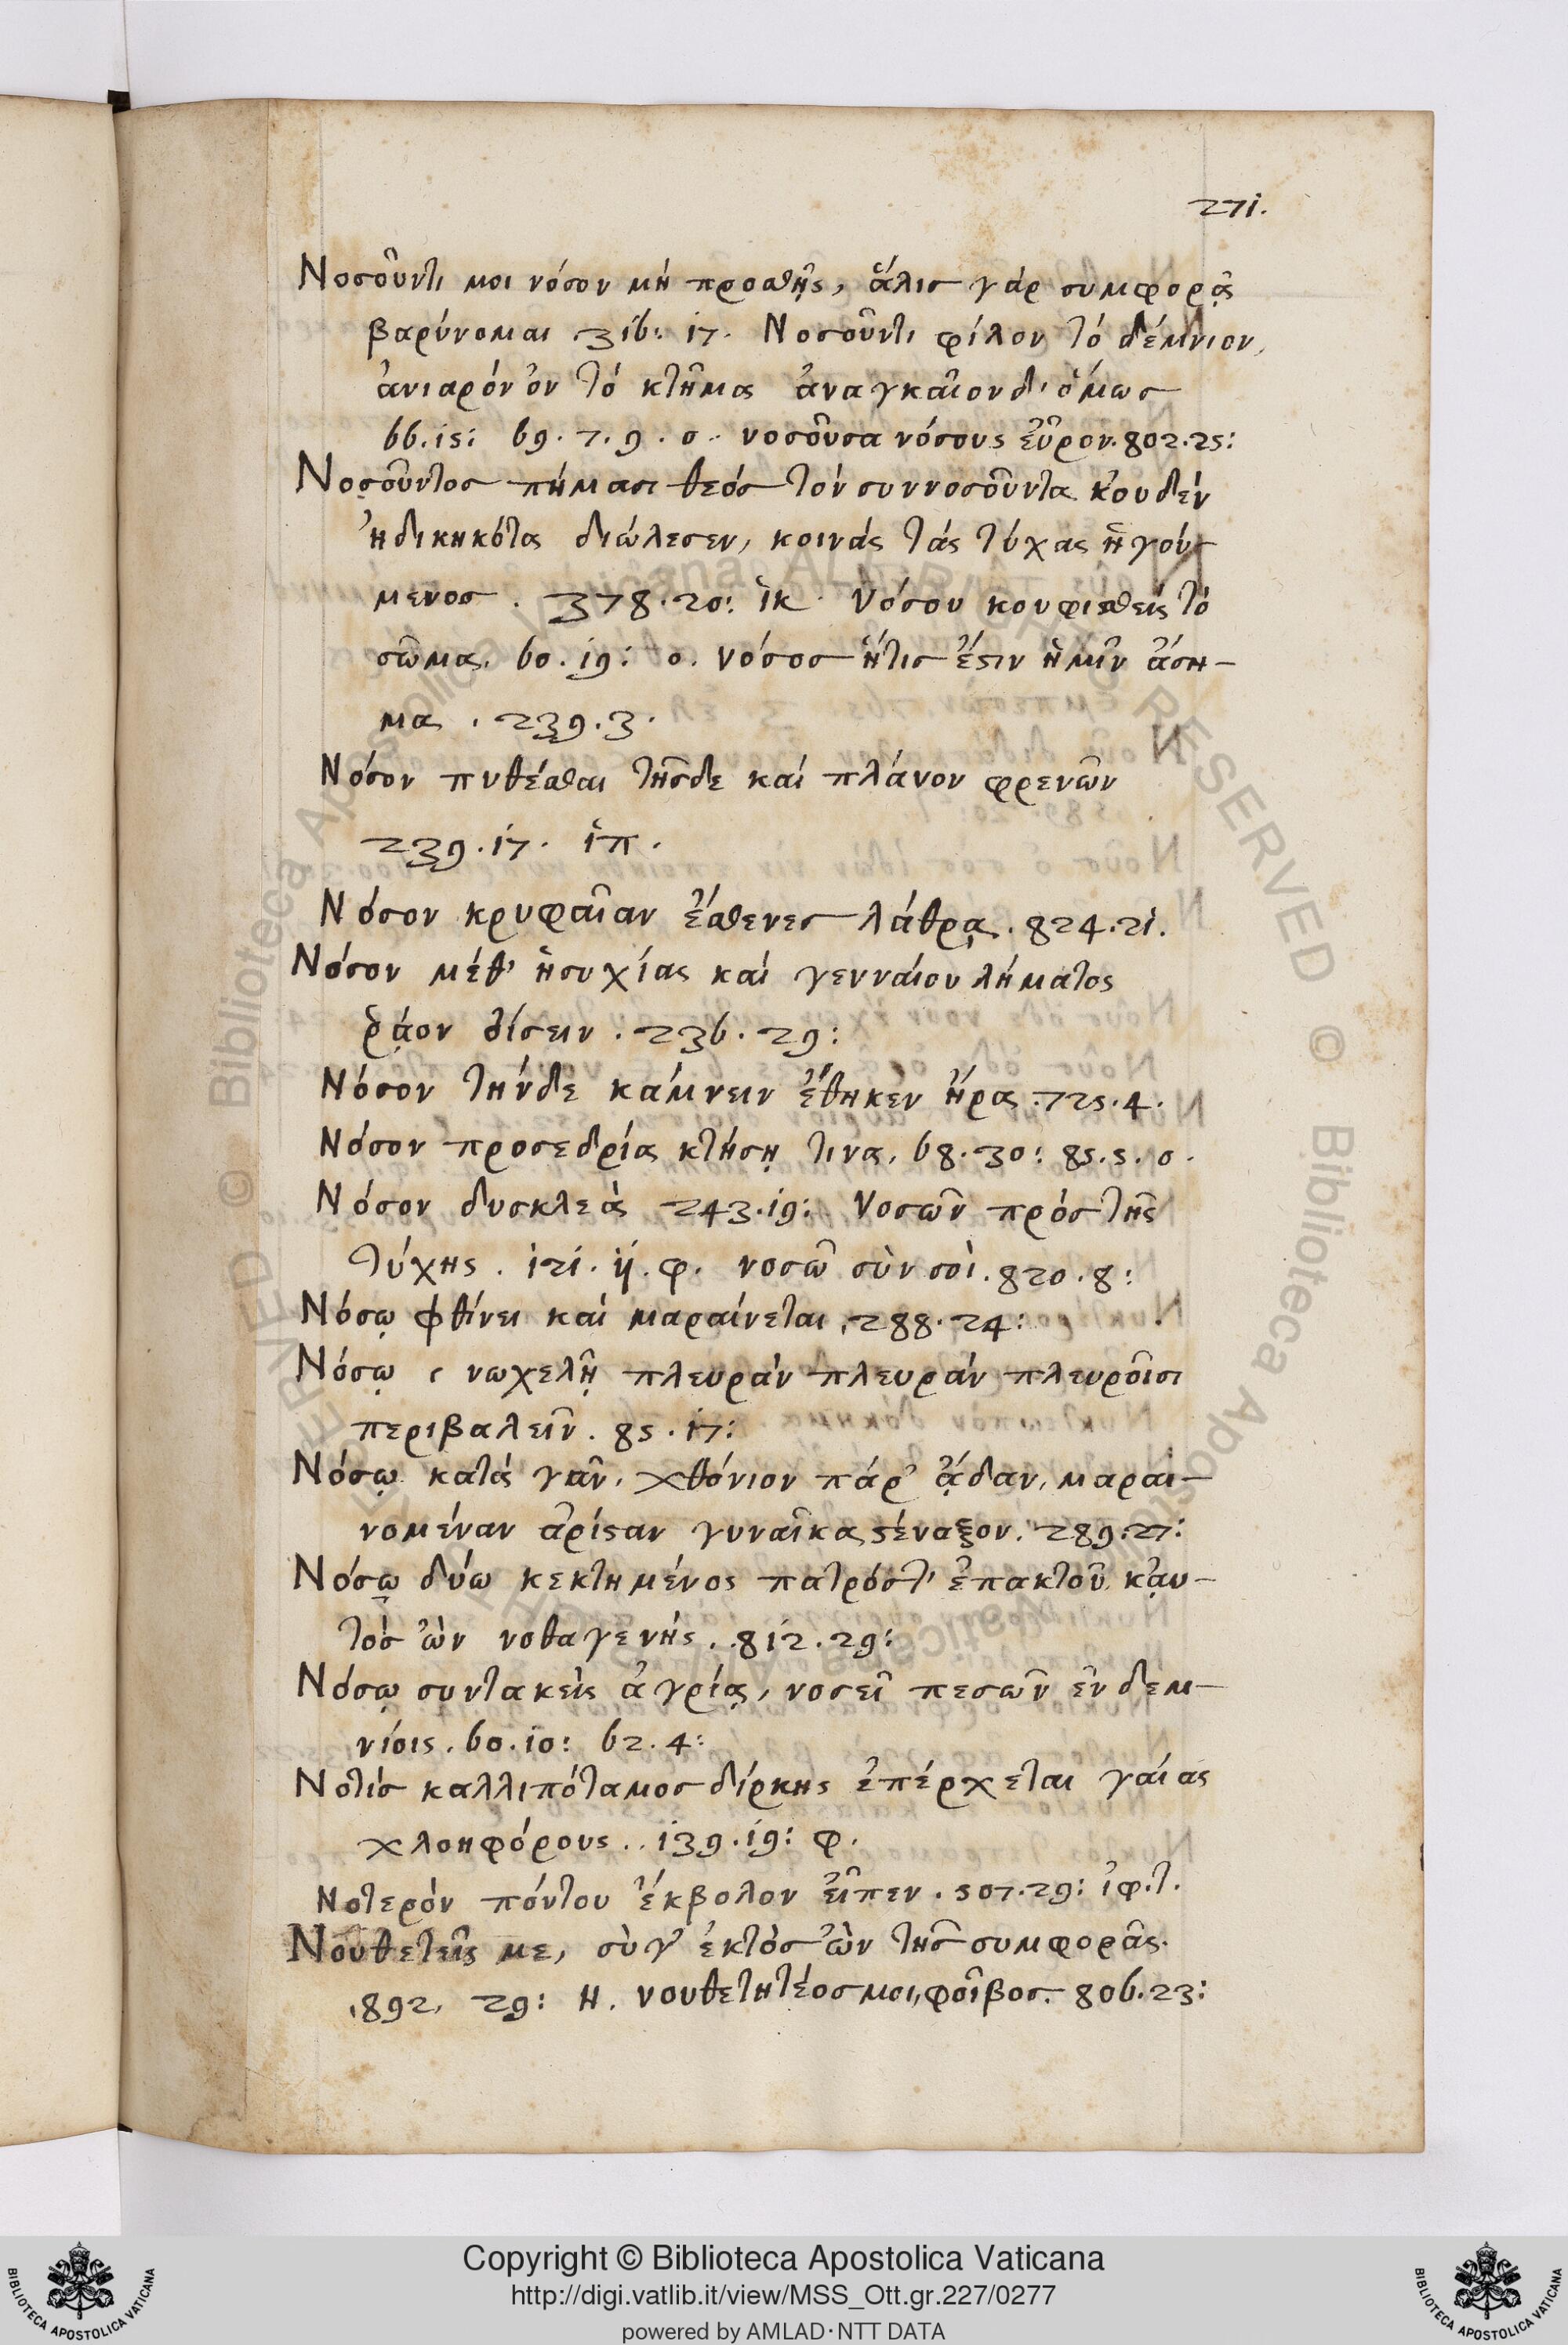 271.
Νοσοῦντι μοι νόσον μὴ προσθῇς, ἅλις γάρ συμφορᾷ
βαρύνομαι 316: 17. Νοσοῦντι φίλον τό δέμνιον,
ἀνιαρόν ὀν τό κτῆμα ἀναγκαῖον δ' ὅμως
66.15: 69.7.9. ο. νοσοῦσα νόσους εὗρον. 802.25:
Νοσοῦντος πήμασι θεός τόν συννοσοῦντα κ'ουδέν
ἠδικηκότα διώλεσεν, κοινάς τάς τύχας ἡγού-
μενος. 378.20: ἱκ. Νόσου κουφισθείς τό
σῶμα. 60.19: ο. νόσος ἥτις ἐστιν ἡμῖν ἄση-
μα. 239.3.
Νόσον πυθέσθαι τῆσδε καί πλάνον φρενῶν
239.17. ἱπ.
Νόσον κρυφαῖαν ἔσθενες λάθρᾳ. 824.21.
Νόσον μέθ' ἡσυχίας καί γενναίου λήματος
ῥᾷον οἴσειν. 236.29:
Νόσον τήνδε κάμνειν ἔθηκεν ἥρα. 725.4.
Νόσον προσεδρίᾳ κτήσῃ τινα. 68.30: 85.5. ο.
Νόσον δυσκλεᾶ 243.19: Νοσῶν πρός τῆς
τύχης. 121.11. φ. νοσῶ σὺν σοὶ. 820.8:
Νόσῳ φθίνει καί μαραίνεται. 288.24:
Νόσῳ νωχελῇ πλευράν πλευράν πλευροῖσι
περιβαλεῖν. 85.17:
Νόσῳ κατά γᾶν. χθόνιον πάρ' ᾅδαν, μαραι-
νομέναν ἀρίσταν γυναῖκα στέναξον. 289.27:
Νόσῳ δύω κεκτημένος πατρός τ' ἐπακτοῦ κ'αυ-
τός ὢν νοθαγενής. 812.29:
Νόσῳ συντακείς ἀγρίᾳ, νοσεῖ πεσῶν ἐν δεμ-
νίοις. 60.10: 62.4:
Νοτίς καλλιπόταμος δίρκης ἐπέρχεται γαίας
χλοηφόρους.. 139.19: φ.
Νοτερόν πόντου ἔκβολον εἶπεν. 507.29: ἰφ.τ.
Νουθετεῖς με, σὺ γ' ἐκτὸς ὢν τῆς συμφορᾶς.
892, 29: Η. νουθετητέος μοι, φοῖβος. 806.23:
Copyright © Biblioteca Apostolica Vaticana
http://digi.vatlib.it/view/MSS_Ott.gr.227/0277
powered by AMLAD·NTT DATA
BIBLIOTECA APOSTOLICA VATICANA
BIBLIOTECA APOSTOLICA VATICANA